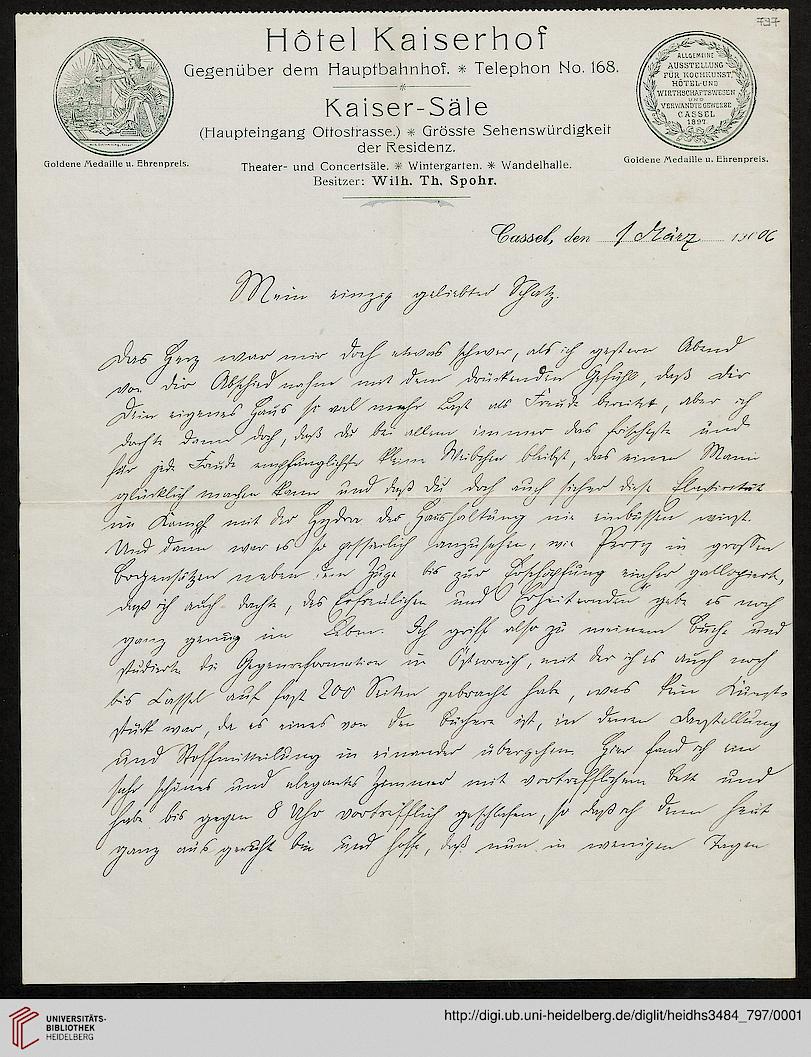 797
Hôtel Kaiserhof
Gegenüber dem Hauptbahnhof. * Telephon No. 168.
Kaiser-Säle
(Haupteingang Ottostrasse.) * Grösste Sehenswürdigkeit
der Residenz.
Theater- und Concertsäle. * Wintergarten. * Wandelhalle.
Besitzer: Wilh. Th. Spohr.
Goldene Medaille u. Ehrenpreis.
ALLGEMEINE
AUSSTELLUNG
FÜR KOCHKUNST,
HÔTEL-UND
WIRTHSCHAFTSWESEN
UND
VERWANDTE GEWERBE
CASSEL
1897.
Goldene Medaille u. Ehrenpreis.
Cassel, den 1 März 1906
Mein einzig geliebter Schatz.
Das Herz war mir doch etwas schwer, als ich gestern Abend
von Dir Abschied nahm mit dem drückenden Gefühl, daß Dir
Dein eigenes Haus so viel mehr Last als Freude bereitet, aber ich
dachte dann doch, daß Du bei allem immer das frischeste und
für jede Freude empfänglichste kleine Weibchen bleibst, das einen Mann
glücklich machen kann und daß Du doch auch sicher diese Elasticität
im Kampf mit der Hydra der Haushaltung nie einbüssen wirst.
Und dann war es so anzusehen, wie in großen
Bogensätzen neben dem Zuge bis zur Erschöpfung einher galloppierte,
daß ich auch dachte, des Erfreulichen und Erheiternden gebe es noch
ganz genug im Leben. Ich griff also zu meinem Buche und
studierte die Gegenreformation in Österreich, mit der ich es auch noch
bis Cassel auf fast 200 Seiten gebracht habe, was kein Kunst-
stück war, da es eines von den Büchern ist, in denen Darstellung
und Stoffmitteilung in einander übergehen. Hier fand ich ein
sehr schönes und elegantes Zimmer mit vortrefflichem Bett und
habe bis gegen 8 Uhr vortrefflich geschlafen, so daß ich denn heut
ganz ausgeruht bin und hoffe, daß nun in wenigen Tagen
UNIVERSITÄTS-
BIBLIOTHEK
HEIDELBERG
http://digi.ub.uni-heidelberg.de/diglit/heidhs3484_797/0001